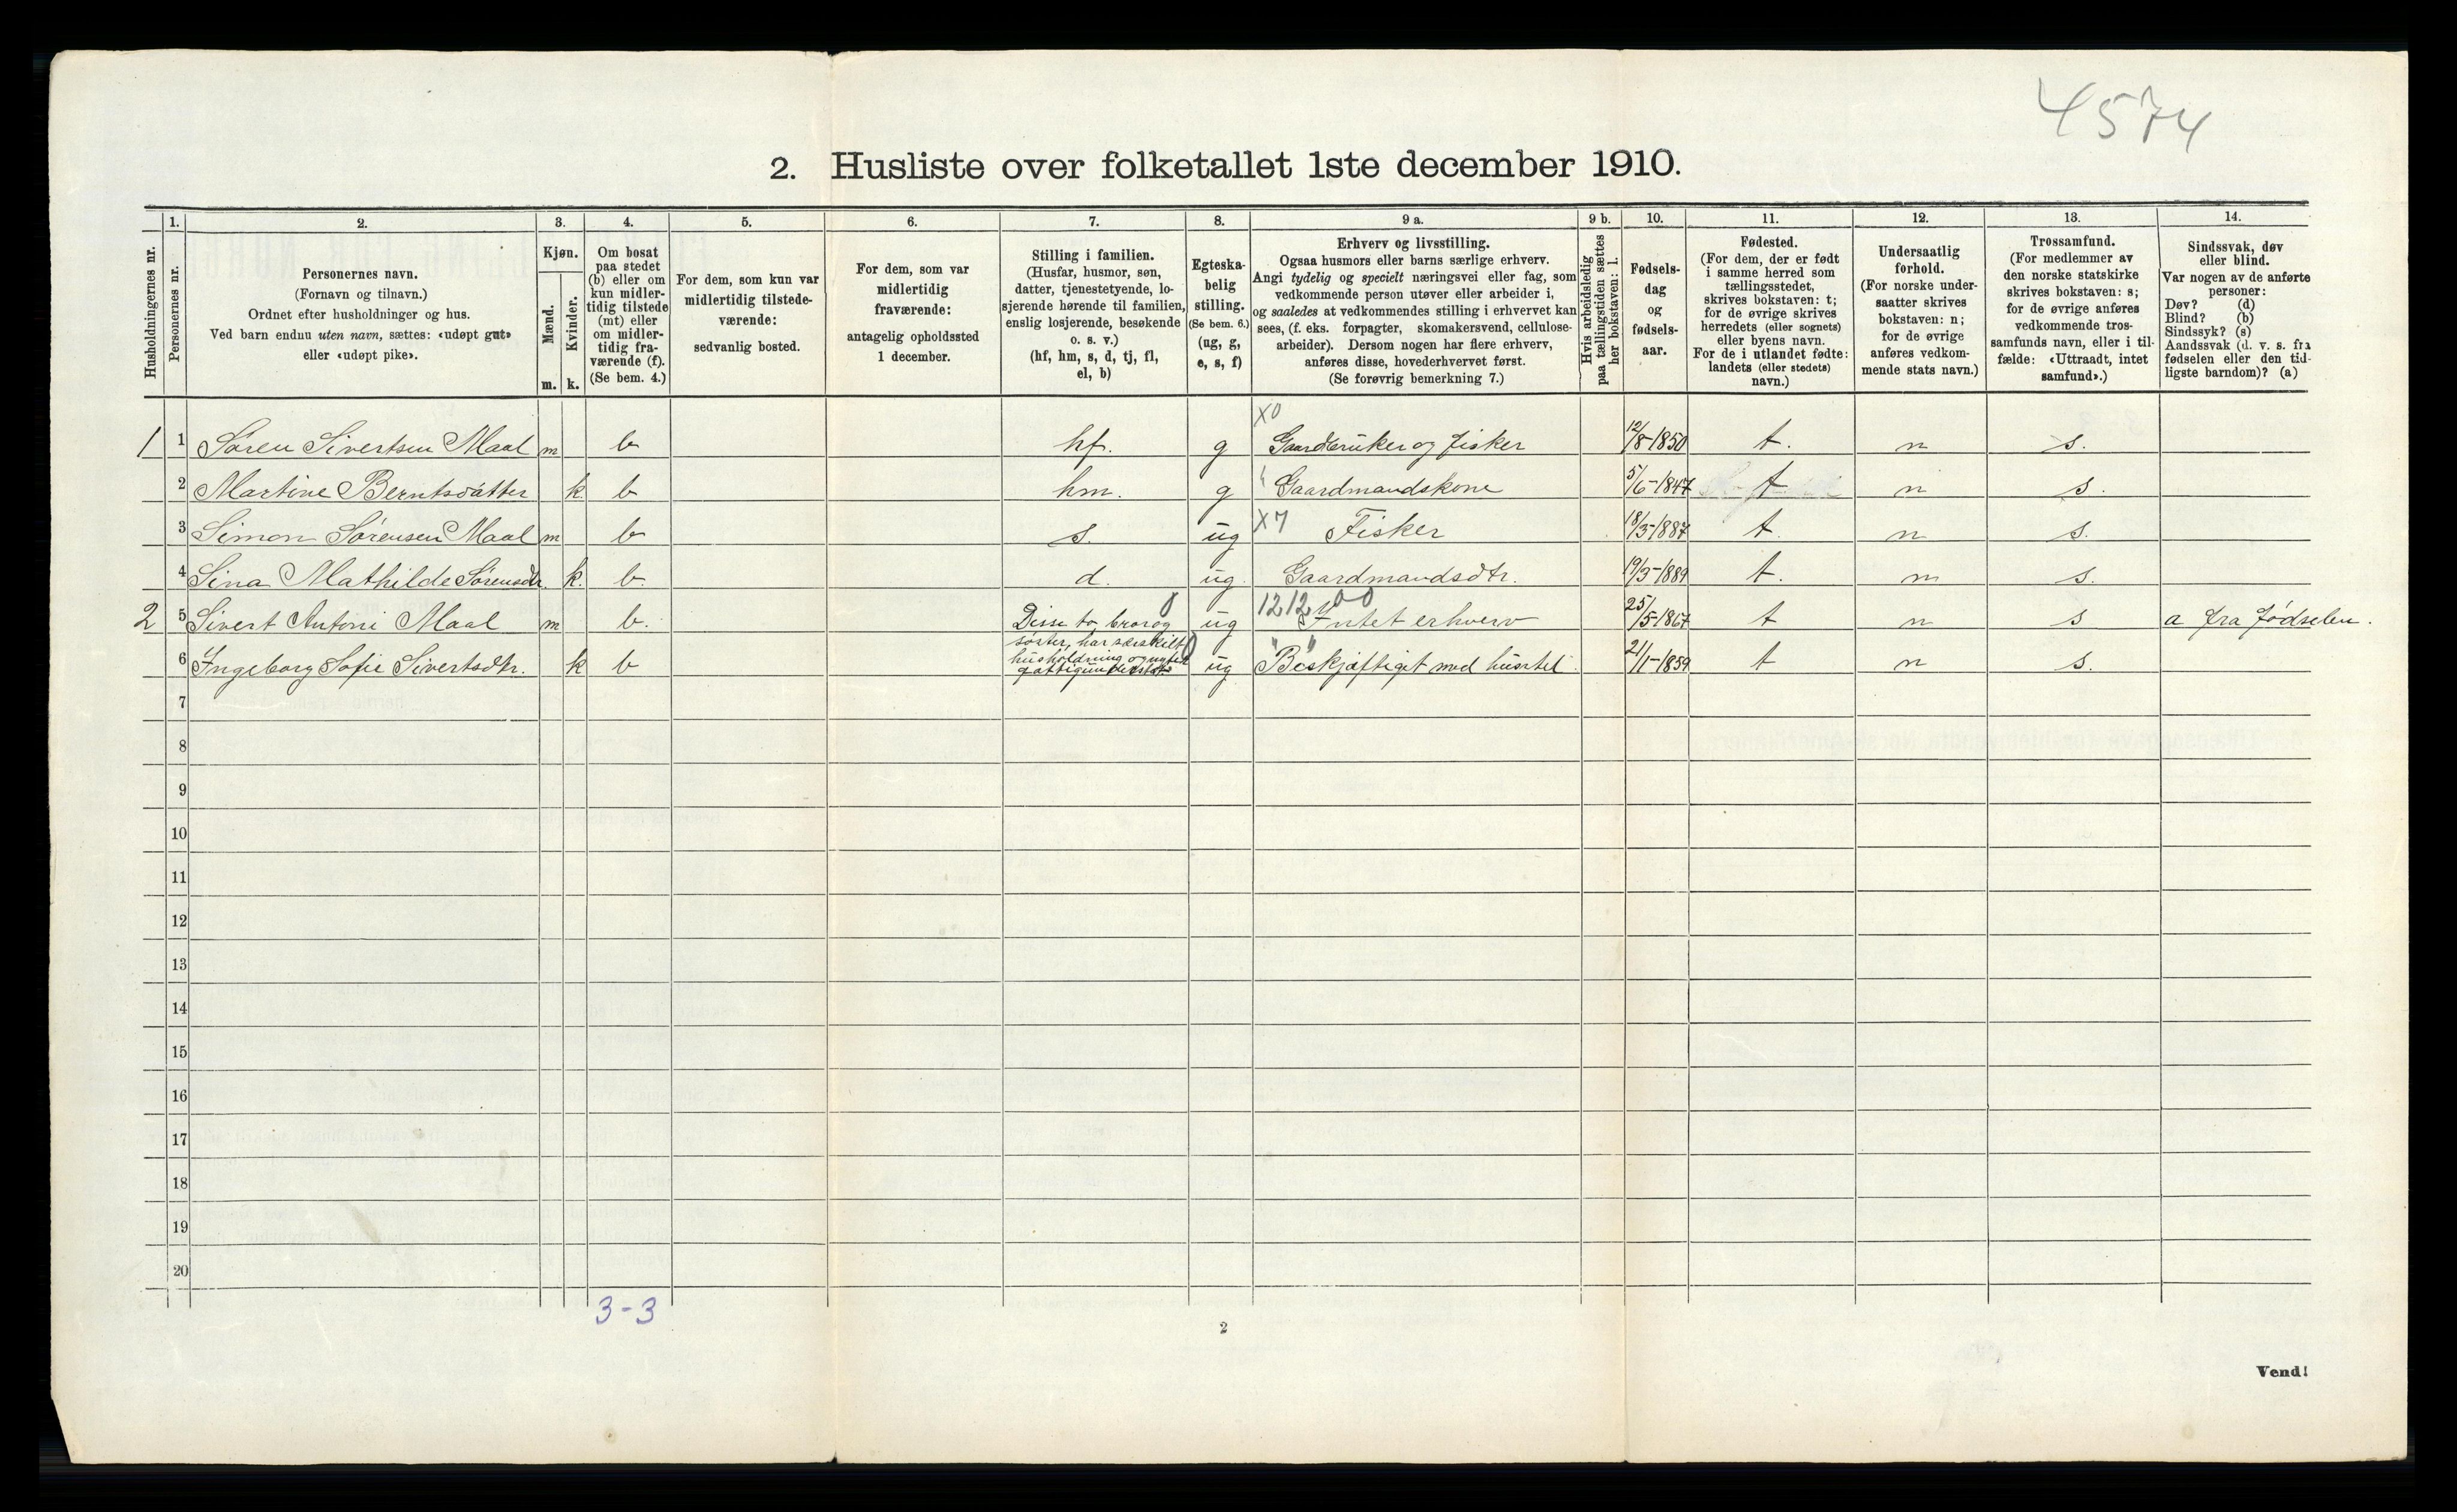 4574
2. Husliste over folketallet 1ste december 1910.
Husholdningernes nr.
1. Personernes nr.
2. Personernes navn. (Fornavn og tilnavn.) Ordnet efter husholdninger og hus. Ved barn endnu uten navn, sættes: «udøpt gut» eller «udøpt pike».
3. Kjøn. Mænd. m. Kvinder. k.
4. Om bosat paa stedet (b) eller om kun midler-tidig tilstede (mt) eller om midler-tidig fra-værende (f). (Se bem. 4.)
5. For dem, som kun var midlertidig tilstede-værende: sedvanlig bosted.
6. For dem, som var midlertidig fraværende: antagelig opholdssted 1 december.
7. Stilling i familien. (Husfar, husmor, søn, datter, tjenestetyende, lo-sjerende hørende til familien, enslig losjerende, besøkende o. s. v.) (hf, hm, s, d, tj, fl, el, b)
8. Egteska-belig stilling. (Se bem. 6.) (ug, g, e, s, f)
9 a. Erhverv og livsstilling. Ogsaa husmors eller barns særlige erhverv. Angi tydelig og specielt næringsvei eller fag, som vedkommende person utøver eller arbeider i, og saaledes at vedkommendes stilling i erhvervet kan sees, (f. eks. forpagter, skomakersvend, cellulose-arbeider). Dersom nogen har flere erhverv, anføres disse, hovederhvervet først. (Se forøvrig bemerkning 7.)
9 b. Hvis arbeidsledig paa tællingstiden sættes her bokstaven: l.
10. Fødsels-dag og fødsels-aar.
11. Fødested. (For dem, der er født i samme herred som tællingsstedet, skrives bokstaven: t; for de øvrige skrives herredets (eller sognets) eller byens navn. For de i utlandet fødte: landets (eller stedets) navn.)
12. Undersaatlig forhold. (For norske under-saatter skrives bokstaven: n; for de øvrige anføres vedkom-mende stats navn.)
13. Trossamfund. (For medlemmer av den norske statskirke skrives bokstaven: s; for de øvrige anføres vedkommende tros-samfunds navn, eller i til-fælde: «Uttraadt, intet samfund».)
14. Sindssvak, døv eller blind. Var nogen av de anførte personer: Døv? (d) Blind? (b) Sindssyk? (s) Aandssvak (d. v. s. fra fødselen eller den tid-ligste barndom)? (a)
1 1 Søren Sivertsen Maal m b hf. g X0 Gaardbruker og fisker 12/8-1850 t. n s.
2 Martine Berntsdatter k b hm. g " Gaardmandskone 5/6-1847 t n s.
3 Simon Sørensen Maal m b s. ug X7 Fisker 18/3-1887 t. n s.
4 Sina Mathilde Sørensdtr. k. b. d. ug. Gaardmandsdtr. 19/3-1889 t. n s.
2 5 Sivert Antoni Maal m b. Disse to bror og 0 ug 1212 Intet erhverv 25/5-1867 t n s a fra fødselen.
søster, har særskilt husholdning og nyter fattigunderstøt. 0
6 Ingeborg Sofie Sivertsdtr. k b ug " " Beskjæftiget med husstel. 21/1-1859 t n s.
7
8
9
10
11
12
13
14
15
16
17
18
19
20
3-3
2
Vend!